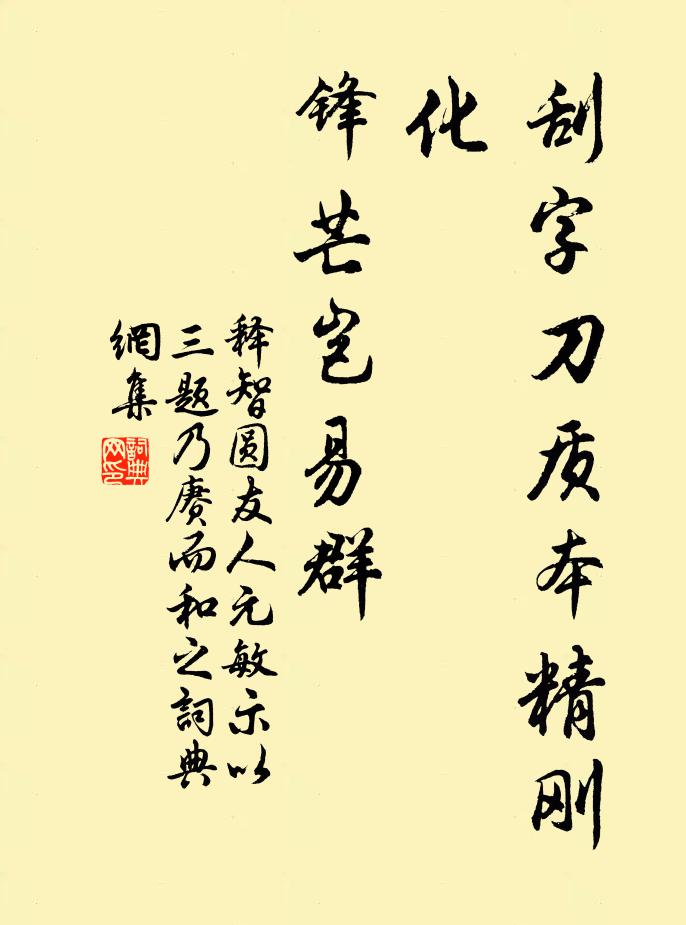 刮字刀质本精刚
化
锋芒岂易群
释智圆友人元敏示以
三题乃赓而和之詞典
網集
詞典
网印